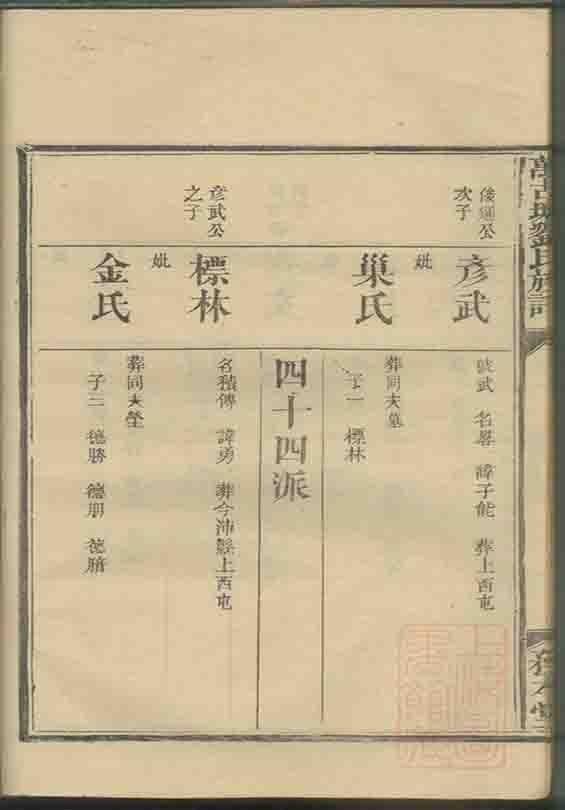 俊通公
次子
彦武
號武 名畧 諱子能 葬上西屯
妣
巢氏
葬同夫墓
子一 標林
四十四派
彦武公
之子
標林
名積傳 諱勇 葬今沛縣上西屯
妣
金氏
葬同夫塋
子三 德勝 德朋 德脯
劉氏族譜